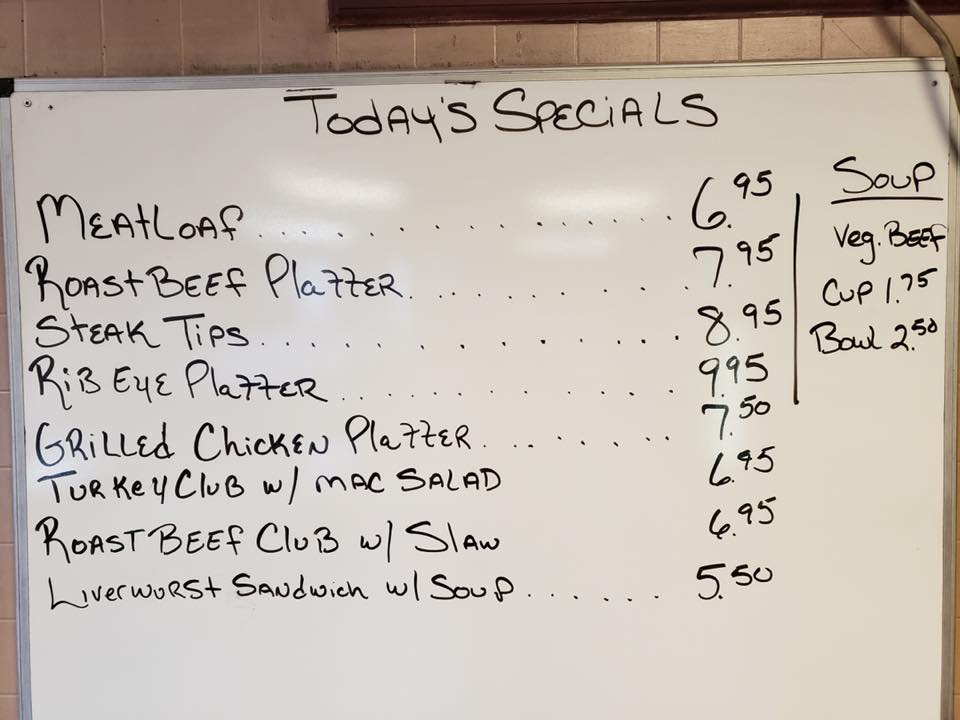 Today's Specials
Meatloaf . . . . . . . . . . . . . . 6.95
Roast Beef Platter . . . . . . . . . . 7.95
Steak Tips . . . . . . . . . . . . . 8.95
Rib Eye Platter . . . . . . . . . . 9.95
Grilled Chicken Platter . . . . . . . 7.50
Turkey Club w/ Mac Salad 6.95
Roast Beef Club w/ Slaw 6.95
Liverwurst Sandwich w/ Soup . . . . . . 5.50
Soup
Veg. Beef
Cup 1.75
Bowl 2.50